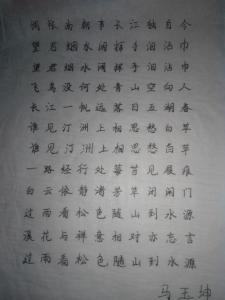 惆怅南朝事长江独自今
望君烟水阔挥手泪沾巾
望君烟水阔挥手泪沾巾
飞鸟没何处青山空向人
长江一帆远落日五湖春
谁见汀洲上相思愁白草
谁见汀洲上相思愁白草
一路经行处莓苔见屐痕
白云依静渚芳草闭闲门
过雨看松色随山到水源
溪花与禅意相对亦忘言
过雨看松色随山到水源
马玉坤